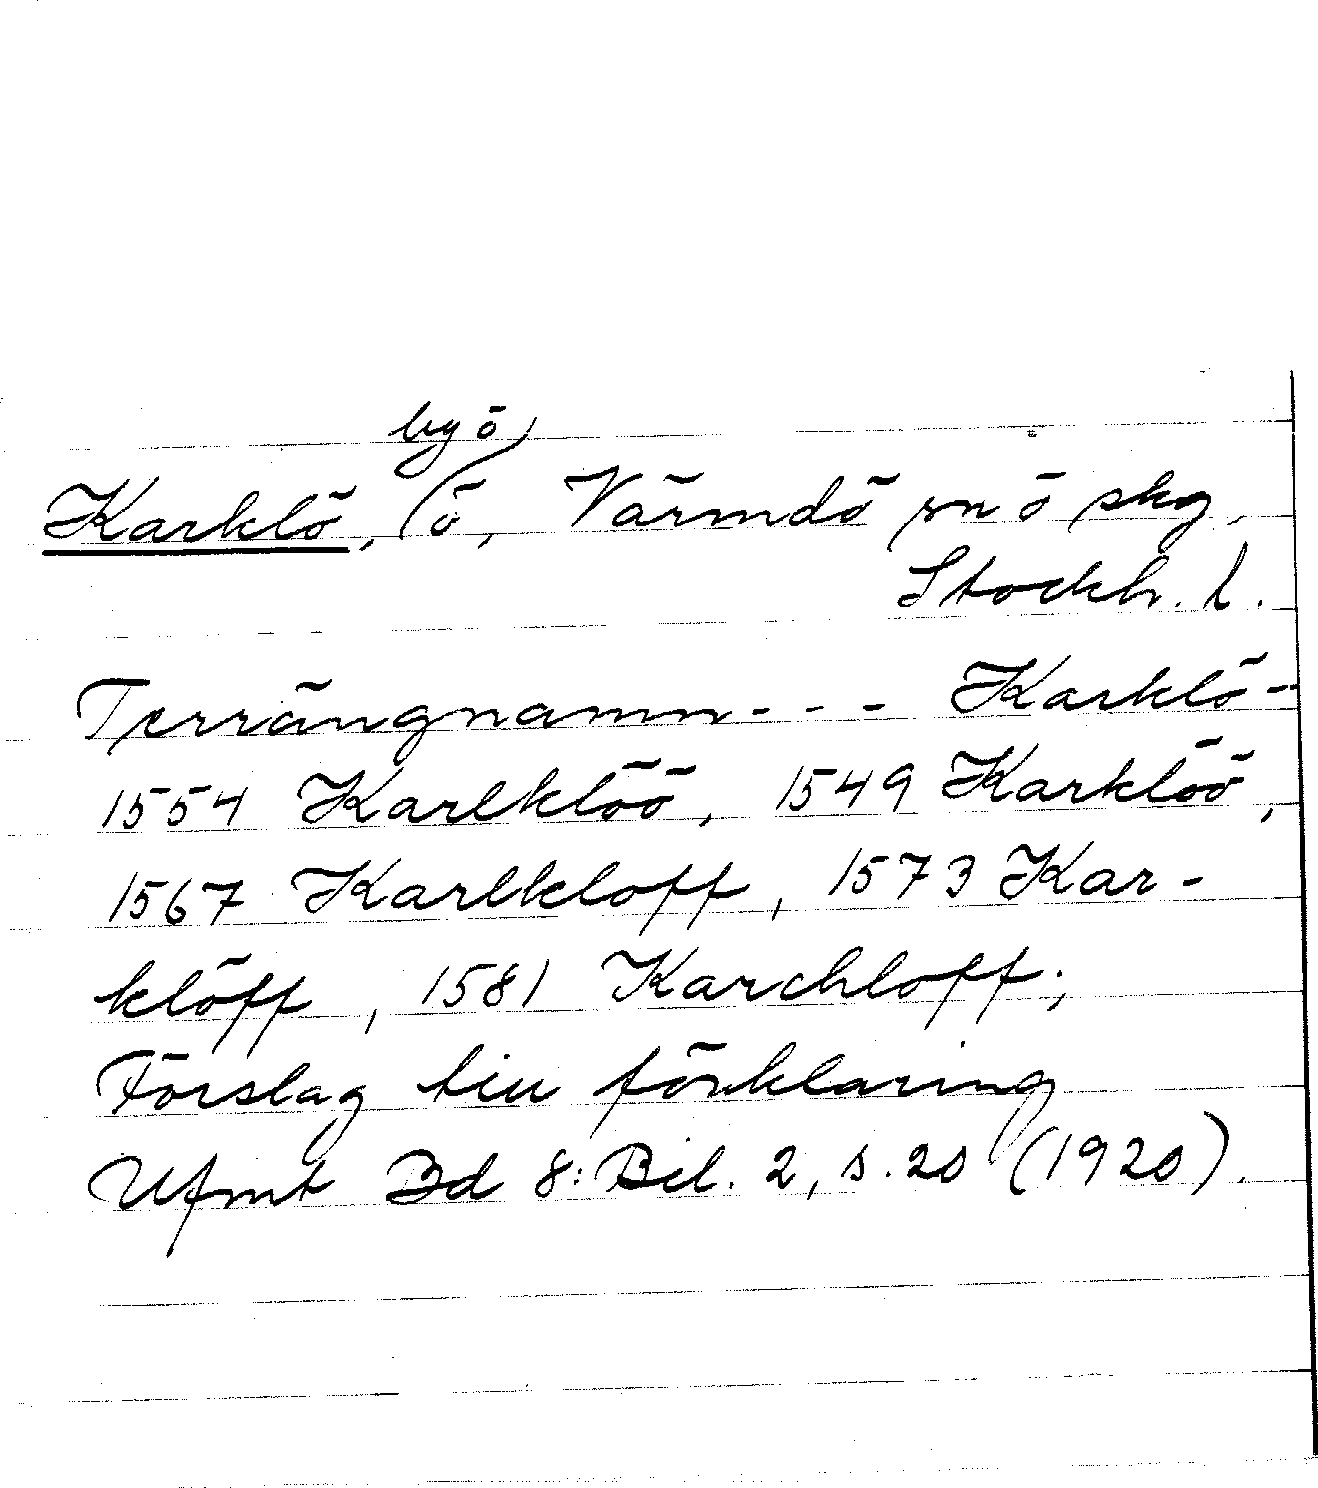 by ö
Karklö, (ö, Värmdö sn ö skg.
Stockh. l.
Terrängnamn - - - Karklö -
1554 Karlklöö, 1549 Karklöö,
1567 Karlkloff, 1573 Kar-
klöff, 1581 Karchloff;
Förslag till förklaring
Ufmt Bd 8: Bil. 2, s. 20 (1920).